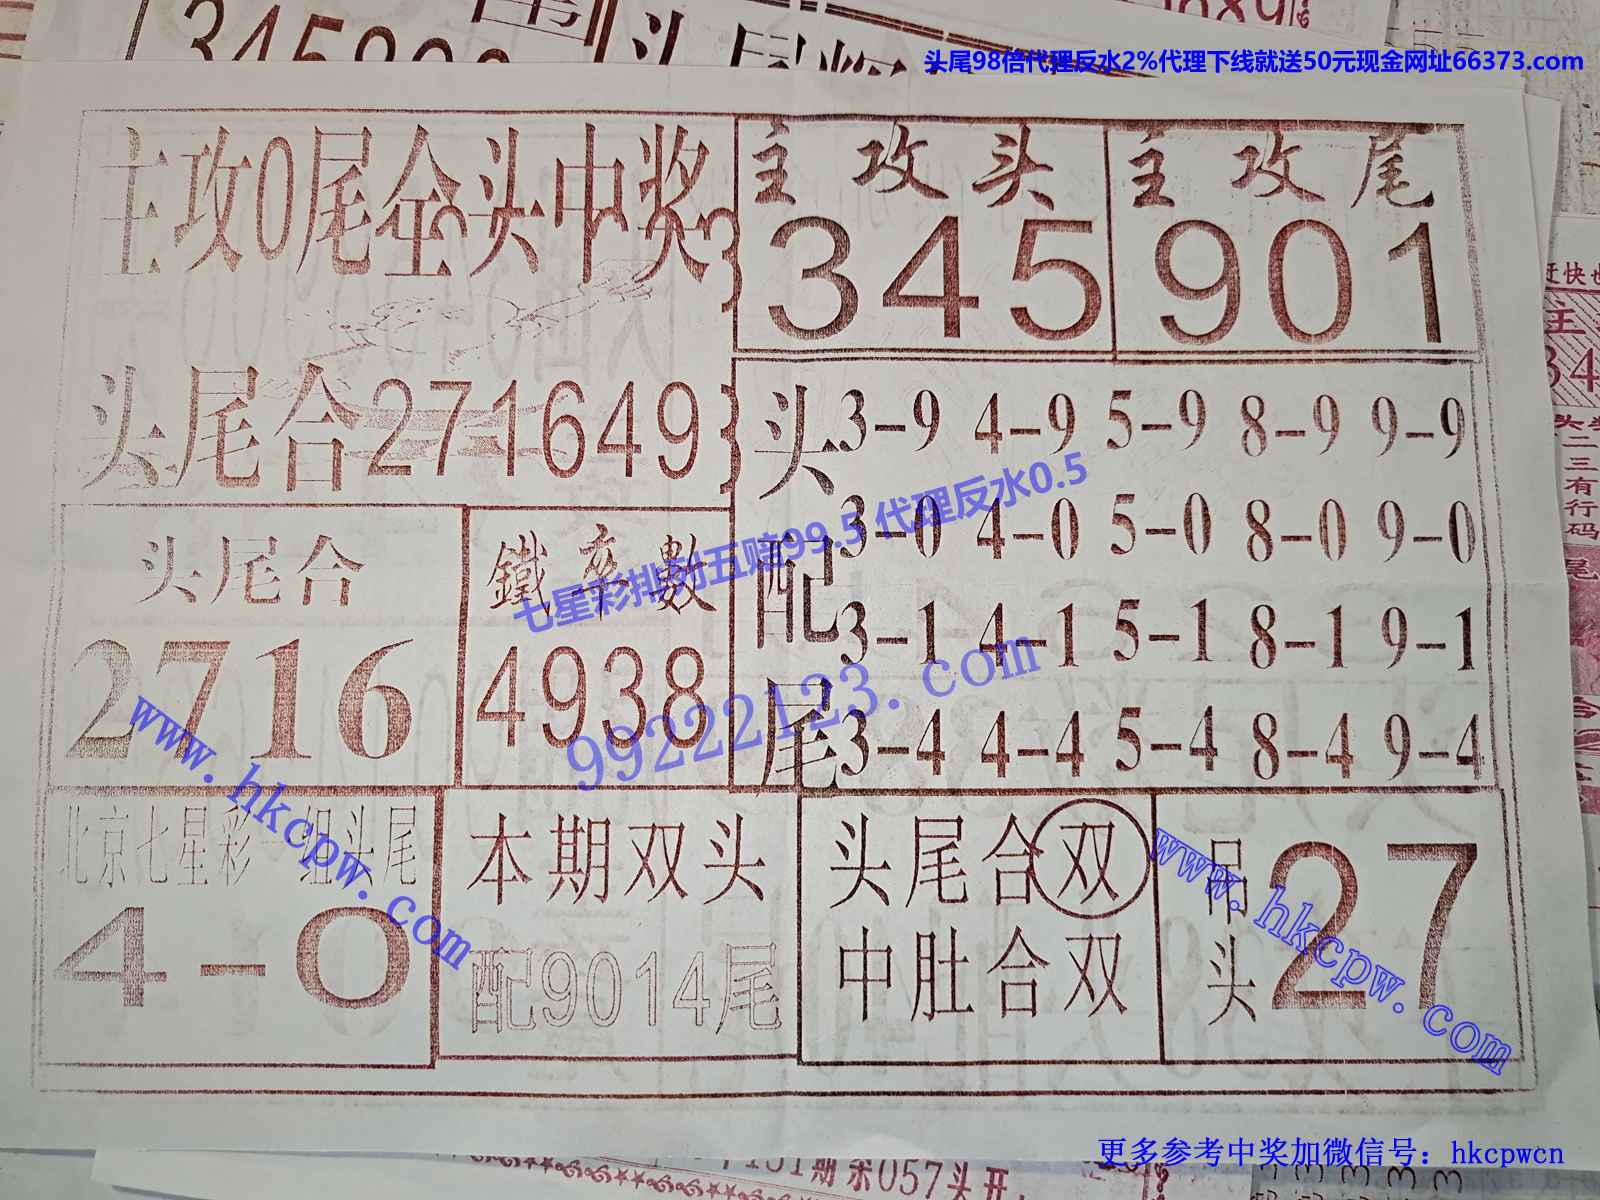 345890
头尾98倍代理反水2%代理下线就送50元现金网址66373.com
主攻0尾全头中奖
主攻头
345
主攻尾
901
头尾合271649
头配尾
3-9 4-9 5-9 8-9 9-9
3-0 4-0 5-0 8-0 9-0
3-1 4-1 5-1 8-1 9-1
3-4 4-4 5-4 8-4 9-4
头尾合
2716
鐵卒數
4938
七星彩排列五赔99.5 代理反水0.5
99222123.com
www.hkcpw.com
北京七星彩一组头尾
4-0
本期双头
配9014尾
头尾合双
中肚合双
吊头
27
www.hkcpw.com
赶快
主
34
头
二
三
有
行
码
尾
合
期杀057头开
更多参考中奖加微信号：hkcpwcn